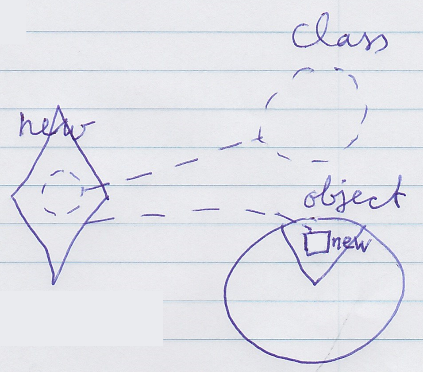 Class
new
object
new